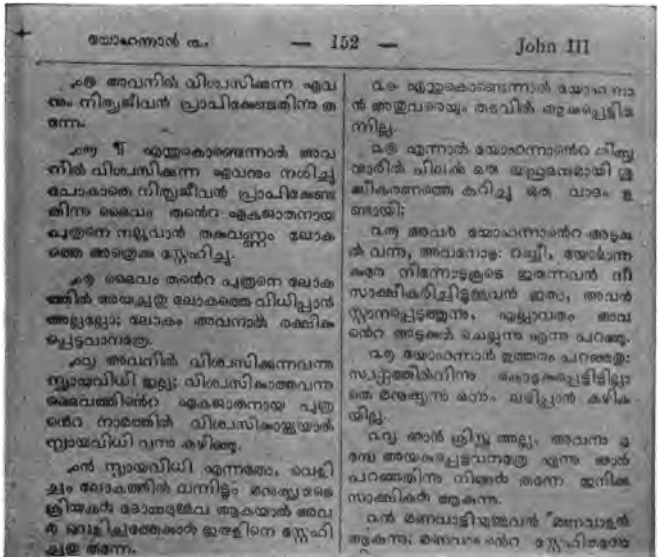 യോഹന്നാൻ ൩. — 152 — John III
൧൫ അവനിൽ വിശ്വസിക്കുന്ന ഏവ
നും നിത്യജീവൻ പ്രാപിക്കേണ്ടതിന്നു ത
ന്നേ.
൧൬ ¶ എന്തുകൊണ്ടെന്നാൽ അവ
നിൽ വിശ്വസിക്കുന്ന ഏവനും നശിച്ചു
പോകാതെ നിത്യജീവൻ പ്രാപിക്കേണ്ട
തിന്നു ദൈവം തന്റെ ഏകജാതനായ
പുത്രനെ നല്കുവാൻ തക്കവണ്ണം ലോക
ത്തെ അത്രെക്കു സ്നേഹിച്ചു.
൧൭ ദൈവം തന്റെ പുത്രനെ ലോക
ത്തിൽ അയച്ചതു ലോകത്തെ വിധിപ്പാൻ
അല്ലല്ലോ; ലോകം അവനാൽ രക്ഷിക്ക
പ്പെടുവാനത്രേ.
൧൮ അവനിൽ വിശ്വസിക്കുന്നവന്നു
ന്യായവിധി ഇല്ല; വിശ്വസിക്കാത്തവന്നു
ദൈവത്തിന്റെ ഏകജാതനായ പുത്ര
ന്റെ നാമത്തിൽ വിശ്വസിക്കായ്കയാൽ
ന്യായവിധി വന്നു കഴിഞ്ഞു.
൧൯ ന്യായവിധി എന്നതോ, വെളി
ച്ചം ലോകത്തിൽ വന്നിട്ടും മനുഷ്യരുടെ
ക്രിയകൾ ദോഷമുള്ളവ ആകയാൽ അവ
ർ വെളിച്ചത്തേക്കാൾ ഇരുളിനെ സ്നേഹി
ച്ചതു തന്നേ.
൨൪ എന്തുകൊണ്ടെന്നാൽ യോഹന്നാ
ൻ അതുവരെയും തടവിൽ ആക്കപ്പെട്ടിരു
ന്നില്ല.
൨൫ എന്നാൽ യോഹന്നാന്റെ ശിഷ്യ
ന്മാരിൽ ചിലൎക്കു ഒരു യഹൂദനുമായി ശു
ദ്ധീകരണത്തെ കുറിച്ചു ഒരു വാദം ഉ
ണ്ടായി;
൨൬ അവർ യോഹന്നാന്റെ അടുക്ക
ൽ വന്നു, അവനോടു: റബ്ബീ, യോൎദാന്ന
ക്കരെ നിന്നോടുകൂടെ ഇരുന്നവൻ നീ
സാക്ഷീകരിച്ചിട്ടുള്ളവൻ ഇതാ, അവൻ
സ്നാനപ്പെടുത്തുന്നു, എല്ലാവരും അവ
ന്റെ അടുക്കൽ ചെല്ലുന്നു എന്നു പറഞ്ഞു.
൨൭ യോഹന്നാൻ ഉത്തരം പറഞ്ഞതു:
സ്വൎഗ്ഗത്തിൽനിന്നു കൊടുക്കപ്പെട്ടിട്ടില്ലാ
തെ മനുഷ്യന്നു ഒന്നും ലഭിപ്പാൻ കഴിക
യില്ല.
൨൮ ഞാൻ ക്രിസ്തു അല്ല, അവന്നു മു
മ്പേ അയക്കപ്പെട്ടവനത്രേ എന്നു ഞാൻ
പറഞ്ഞതിന്നു നിങ്ങൾ തന്നേ ഇനിക്കു
സാക്ഷികൾ ആകുന്നു.
൨൯ മണവാട്ടിയുള്ളവൻ മണവാളൻ
ആകുന്നു; മണവാളന്റെ സ്നേഹിതനോ